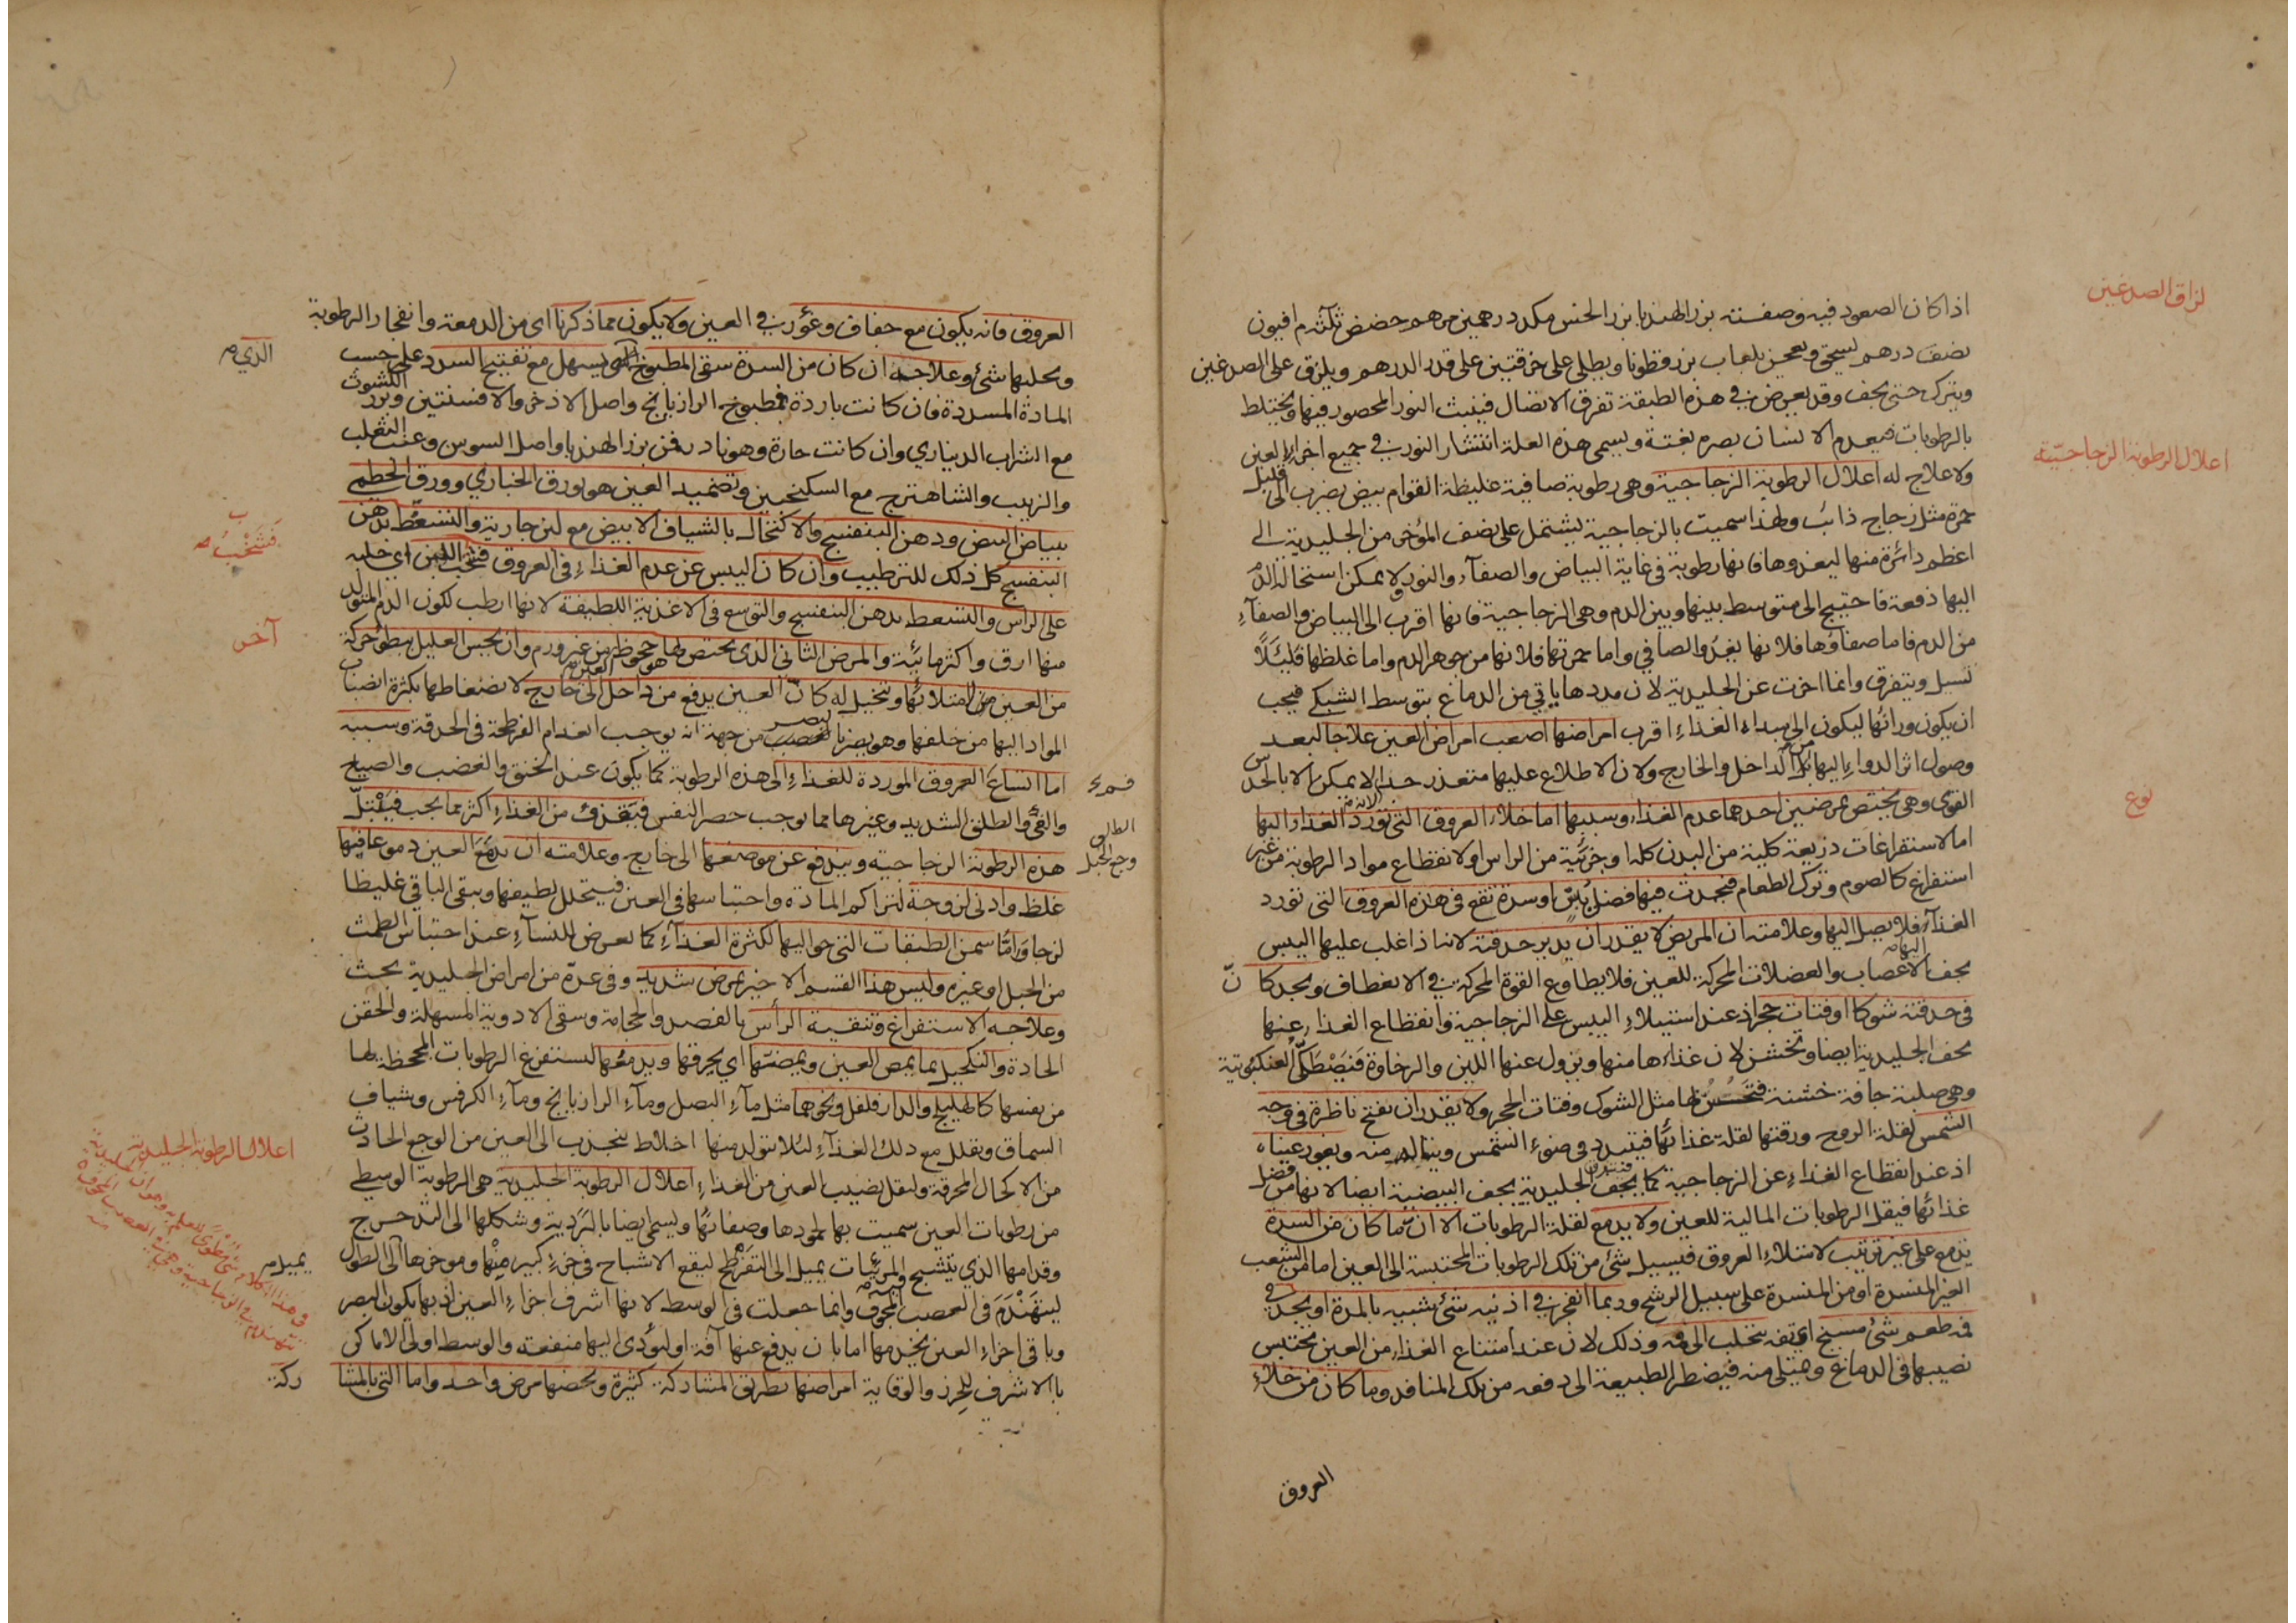 لزاق الصدغين
اذا كان الصعود فيه وصفته بزر الهندبا بزر الخس مكد درهمين حضض ثلثة م افيون
نصف درهم يسحق ويعجن بلعاب بزر قطونا ويطلى على خرقتين على قدر الدرهم ويلزق على الصدغين
ويترك حتى يجف وقد يعرض في هذه الطبقة تفرق الاتصال فينبث النور المحصور فيها ويختلط
بالرطوبات فيعدم الانسان بصره بغتة ويسمى هذه العلة انتشار النور في جميع اجزاء العين
اعلال الرطوبة الزجاجيّة
ولا علاج له اعلال الرطوبة الزجاجية وهى رطوبة صافية غليظة القوام بيض يضرب الى قليل
حمرة مثل زجاج ذائب ولهذا سميت بالزجاجية يشتمل على نصف المؤخر من الجليدية الى
اعظم دائرة منها ليغذوها فانها رطوبة فى غاية البياض والصفآء والنور ولا يمكن استحالة الدم
اليها دفعة فاحتيج الى متوسط بينها وبين الدم وهى الزجاجية فانها اقرب الى البياض والصفآء
من الدم فاما صفاؤها فلانها يغذو الصافي واما حمرتها فلانها من جوهر الدم واما غلظها فلئلا
تسيل ويتفرق وانما اخرت عن الجليدية لان مددها ياتي من الدماغ بتوسط الشبكي فيجب
ان يكون ورائها ليكون الى مبداء الغذاء اقرب امراضها اصعب امراض العين علاجا لبعد
وصول اثر الدواء اليها من الداخل والخارج ولان الاطلاع عليها متعذر جدا لا يمكن الا بالحدس
نوع
القوى وهى يختص بمرضين احدهما عدم الغذاء وسببها اما خلاء العروق التى تورد الغذاء اليها
اما لاستفراغات ذريعة كلية من البدن كله او جزئية من الراس او لانقطاع مواد الرطوبة من غير
استفراغ كالصوم وترك الطعام فيحدث فيها فضل يبس او سدة تقع فى هذه العروق التى تورد
الغذآء فلا يصل اليها وعلامته ان المريض لا يقدر ان يدير حدقته لانها اذا غلب عليها اليبس
يجف الاعصاب والعضلات المحركة للعين فلا يطاوع القوة المحركة في الانعطاف ويجد كانّ
فى حدقته شوكا او فتات حجر اذ عند استيلاء اليبس على الزجاجية وانقطاع الغذاء عنها
يجف الجليدية ايضا وتخشن لان غذاءها منها ويزول عنها اللين والرخاوة فيصطكّ العنكبوتية
وهى صلبة جافة خشنة فتحس لها مثل الشوك وفتات الحجر ولا يقدر ان يفتح ناظره فى وجه
الشمس لقلة الروح ورقتها لقلة غذائها فيتبدد في ضوء الشمس ويتالم منه ويغور عيناه
اذ عند انقطاع الغذاء عن الزجاجية كما يجف الجليدية يجف البيضية ايضا لانها من فضل
غذائها فيقل الرطوبات المالية للعين ولا يدمع لقلة الرطوبات الا ان ما كان من السدة
يدمع على غير ترتيب لامتلاء العروق فيسيل شئ من تلك الرطوبات المحتبسة الى العين اما من الشعب
الغير المنسدة او من المنسدة على سبيل الرشح وربما انفجر في اذنيه شئ شبيه بالمدة او يجد في
فمه طعم شئ مسيخ اى تفه يتحلب الى فمه وذلك لان عند امتناع الغذاء من العين يحتبس
نصيبها فى الدماغ ويمتلى منه فيضطر الطبيعة الى دفعه من تلك المنافذ وما كان من خلاء
العروق
العروق فانه يكون مع جفاف وغؤر في العين ولا يكون مما ذكرنا اى من الدمعة وانفجار الرطوبة
الذي صح
وتحلبها شئ وعلاجه ان كان من السدة سقى المطبوخ الذى يسهل مع تفتيح السدد على حسب
المادة المسددة فان كانت باردة فمطبوخ الرازيانج واصل الاذخر والافسنتين وبزر الكشوث
مع الشراب الديناري وان كانت حارة وهو نادر فمن بزر الهندبا واصل السوس وعنب الثعلب
والزبيب والشاهترج مع السكنجبين وتضميد العين هو بورق الخبازي وورق الخطمي
ببياض البيض ودهن البنفسج والاكتحال بالشياف الابيض مع لبن جارية والتسعط بدهن
فشخب صح
البنفسج كل ذلك للترطيب وان كان اليبس عن عدم الغذاء فى العروق فشخب اللبن اى حلبه
على الراس والتسعط بدهن البنفسج والتوسع فى الاغذية اللطيفة لانها ارطب لكون الدم المتولد
آخر
منها ارق واكثر مائية والمرض الثانى الذى يختص بها جحوظ من غير ورم وان يحس العليل ببطؤ حركة
من العين من امتلائها ويتخيل له كان العين يدفع من داخل الى خارج لانضغاطها بكثرة انصباب
المواد اليها من خلفها وهو يضر بالبصر من جهة انه يوجب انعدام الفرطحة فى الحدقة وسببه
اما اتساع العروق الموردة للغذاء الى هذه الرطوبة كما يكون عند الخنق والغضب والصياح
والقئ والطلق الشديد وغيرها مما يوجب حصر النفس فيقذف من الغذاء اكثر مما يجب فيبتلّ
الطلق
وجع الحبل
هذه الرطوبة الزجاجية ويندفع عن موضعها الى خارج وعلامته ان يدمع العين دموعا فيها
غلظ وادنى لزوجة لتراكم المادة واحتباسها فى العين فيتحلل لطيفها ويبقى الباقي غليظا
لزجا وامّا سمن الطبقات التى حواليها لكثرة الغذآء كما يعرض للنسآء عند احتباس الطمث
من الحبل او غيره وليس هذا القسم الاخير بمرض شديد وفى عدّه من امراض الجليدية بحث
وعلاجه الاستفراغ وتنقية الرأس بالفصد والحجامة وسقى الادوية المسهلة والحقن
الحادة والتكحيل بما يمض العين ويمضّها اي يحرقها ويدمعها لتستفرغ الرطوبات المجحظة لها
من نفسها كالهليلج والدارفلفل ونحوهما مثل مآء البصل ومآء الرازيانج ومآء الكرفس وشياف
السماق ويقلل مع ذلك الغذآء لئلا يتولد منها اخلاط ينجذب الى العين من الوجع الحادث
اعلال الرطوبة الجليدية
من الاكحال المحرقة وليقل نصيب العين من الغذاء اعلال الرطوبة الجليدية هى الرطوبة الوسطى
من رطوبات العين سميت بها لجمودها وصفائها ويسمى ايضا بالبَرَدية وشكلها الى التدحرج
وقدامها الذي يتشبح المرئيات يميل الى التفرطح ليقع الاشباح فى جزء كبير منها وموخرها الى الطول
يميل صح
ليتهندم فى العصب المجوف وانما جعلت فى الوسط لانها اشرف اجزاء العين اذ بها يكون البصر
وباقى اجزاء العين يخدمها اما بان يدفع عنها آفة او ليؤدى اليها منفعة والوسط اولى الاماكن
بالاشرف للحرز والوقاية امراضها بطريق المشاركة كثيرة ويخصها مرض واحد واما التى بالمشا
ركة